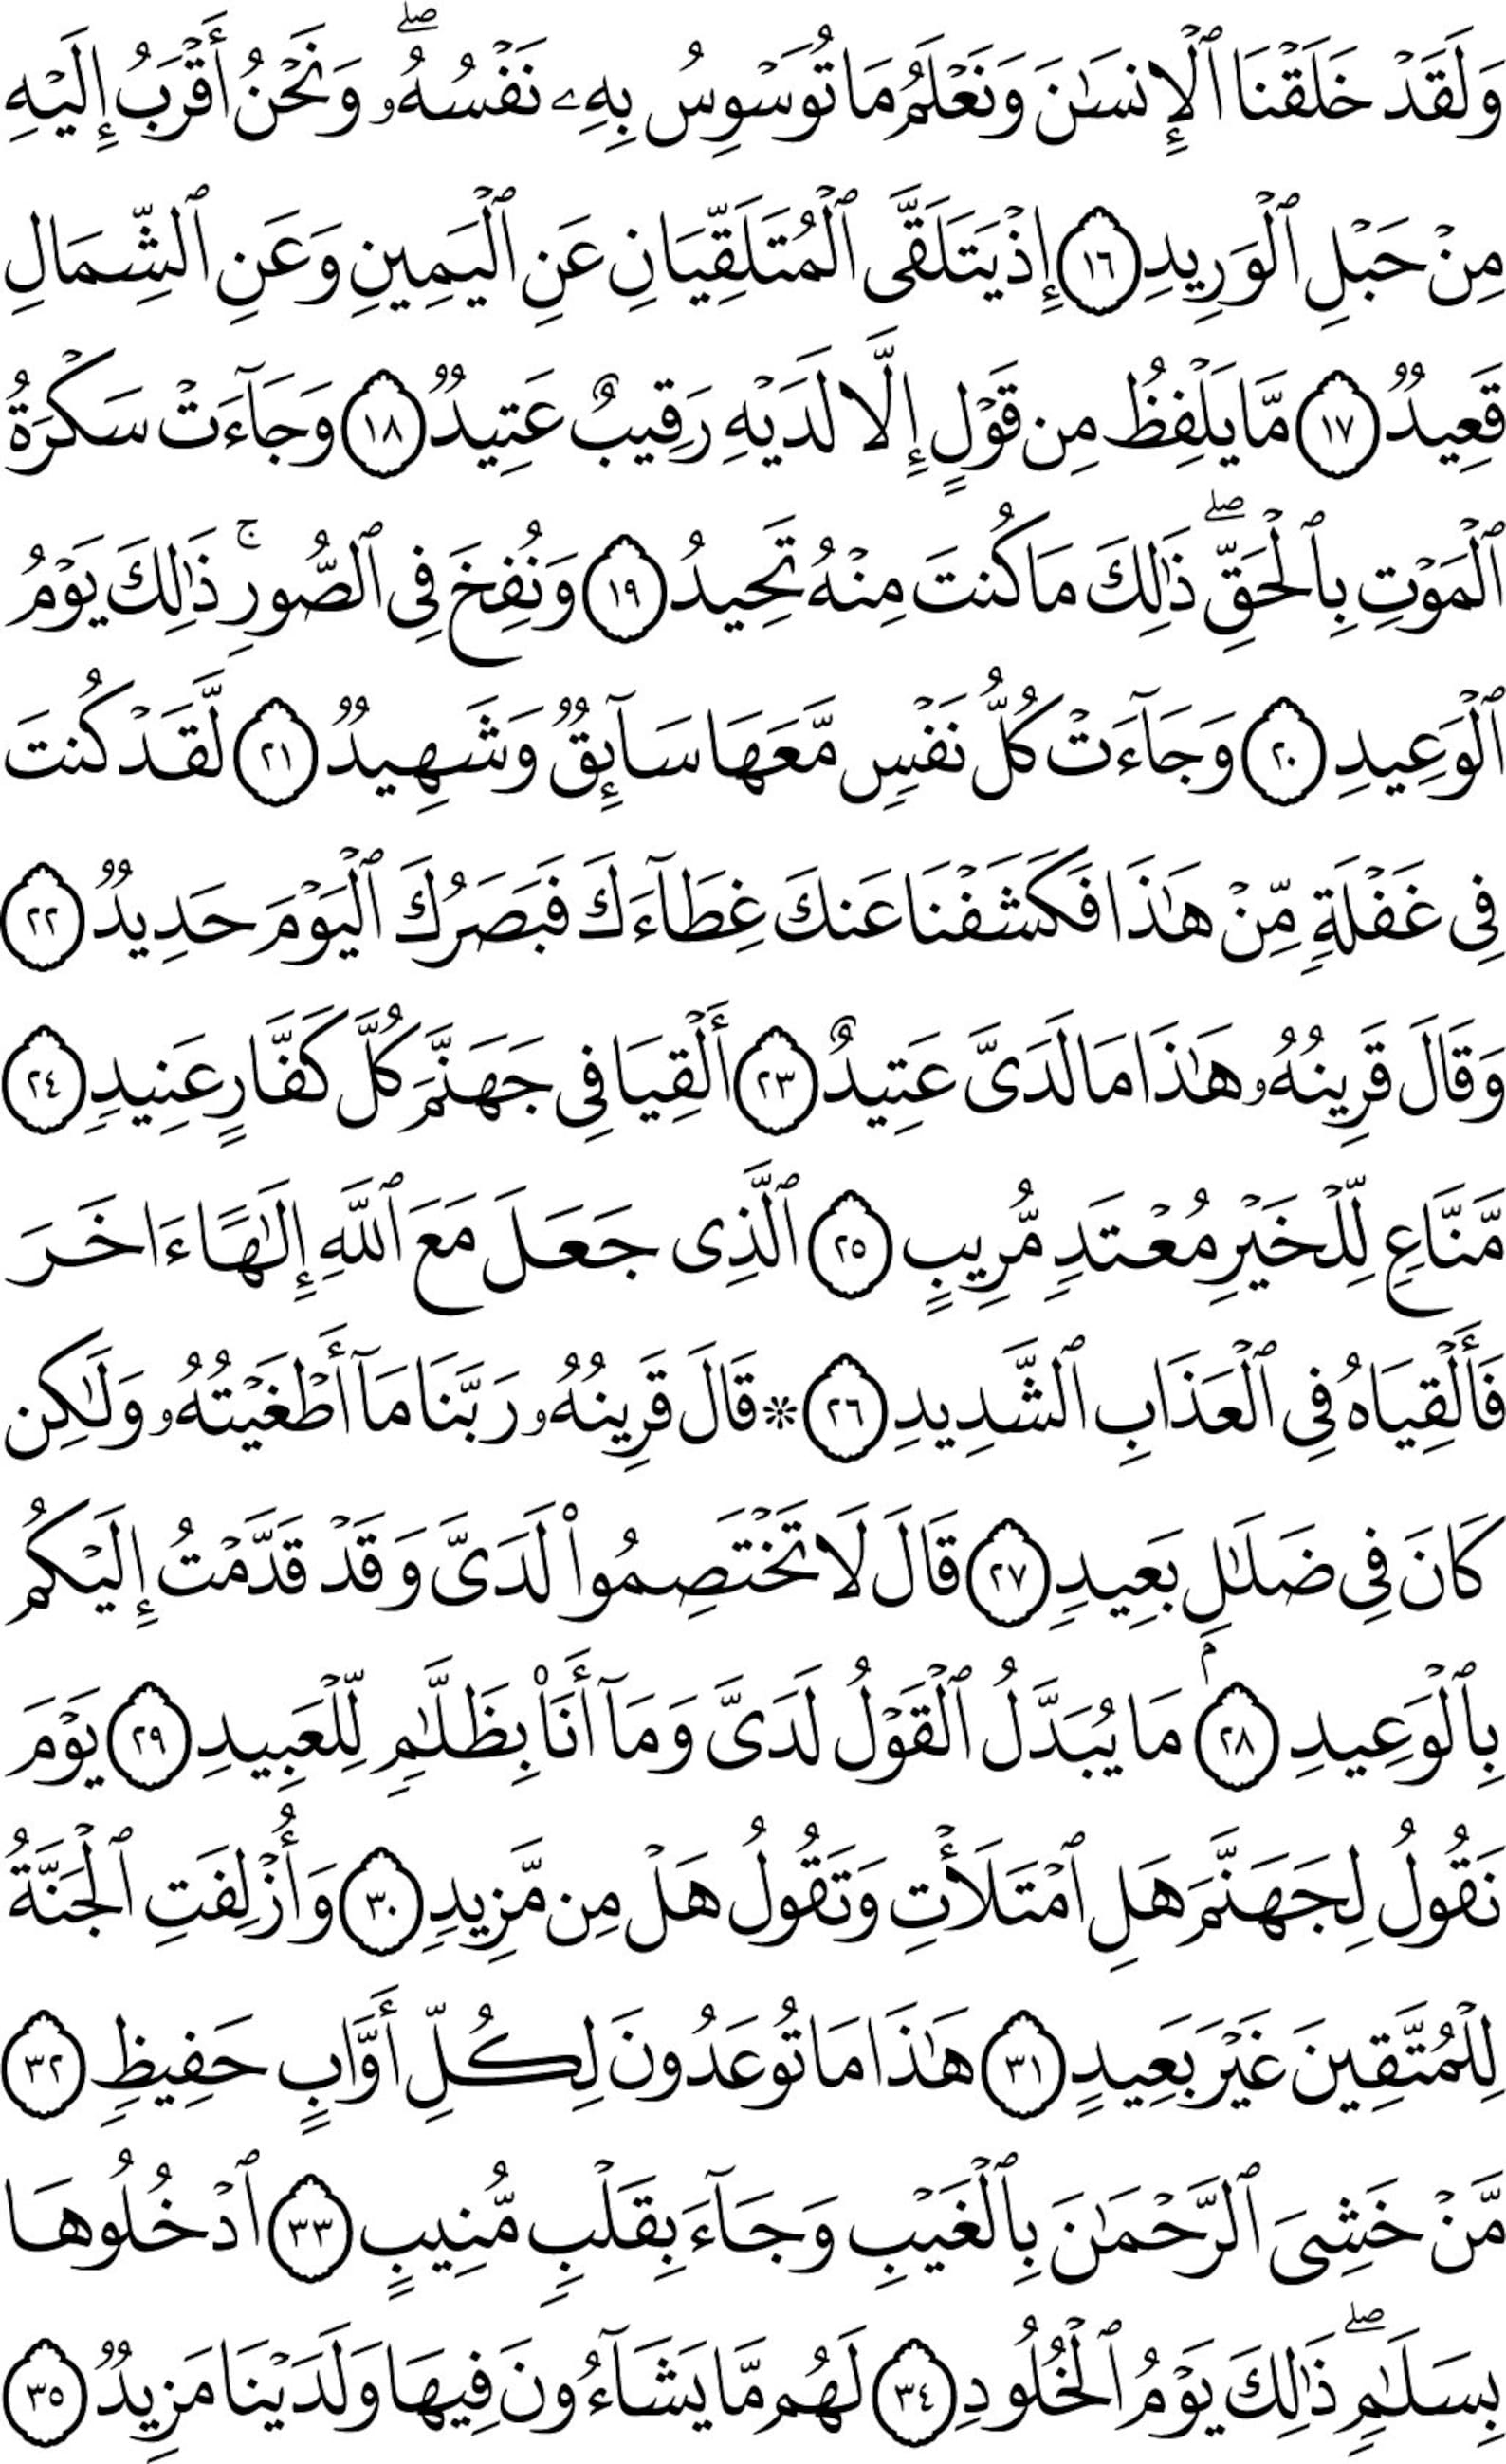 وَلَقَدۡ خَلَقۡنَا ٱلۡإِنسَٰنَ وَنَعۡلَمُ مَا تُوَسۡوِسُ بِهِۦ نَفۡسُهُۥۖ وَنَحۡنُ أَقۡرَبُ إِلَيۡهِ
مِنۡ حَبۡلِ ٱلۡوَرِيدِ ١٦ إِذۡ يَتَلَقَّى ٱلۡمُتَلَقِّيَانِ عَنِ ٱلۡيَمِينِ وَعَنِ ٱلشِّمَالِ
قَعِيدٞ ١٧ مَّا يَلۡفِظُ مِن قَوۡلٍ إِلَّا لَدَيۡهِ رَقِيبٌ عَتِيدٞ ١٨ وَجَآءَتۡ سَكۡرَةُ
ٱلۡمَوۡتِ بِٱلۡحَقِّۖ ذَٰلِكَ مَا كُنتَ مِنۡهُ تَحِيدُ ١٩ وَنُفِخَ فِي ٱلصُّورِۚ ذَٰلِكَ يَوۡمُ
ٱلۡوَعِيدِ ٢٠ وَجَآءَتۡ كُلُّ نَفۡسٖ مَّعَهَا سَآئِقٞ وَشَهِيدٞ ٢١ لَّقَدۡ كُنتَ
فِي غَفۡلَةٖ مِّنۡ هَٰذَا فَكَشَفۡنَا عَنكَ غِطَآءَكَ فَبَصَرُكَ ٱلۡيَوۡمَ حَدِيدٞ ٢٢
وَقَالَ قَرِينُهُۥ هَٰذَا مَا لَدَيَّ عَتِيدٌ ٢٣ أَلۡقِيَا فِي جَهَنَّمَ كُلَّ كَفَّارٍ عَنِيدٖ ٢٤
مَّنَّاعٖ لِّلۡخَيۡرِ مُعۡتَدٖ مُّرِيبٍ ٢٥ ٱلَّذِي جَعَلَ مَعَ ٱللَّهِ إِلَٰهًا ءَاخَرَ
فَأَلۡقِيَاهُ فِي ٱلۡعَذَابِ ٱلشَّدِيدِ ٢٦ ۞ قَالَ قَرِينُهُۥ رَبَّنَا مَآ أَطۡغَيۡتُهُۥ وَلَٰكِن
كَانَ فِي ضَلَٰلِۭ بَعِيدٖ ٢٧ قَالَ لَا تَخۡتَصِمُواْ لَدَيَّ وَقَدۡ قَدَّمۡتُ إِلَيۡكُم
بِٱلۡوَعِيدِ ٢٨ مَا يُبَدَّلُ ٱلۡقَوۡلُ لَدَيَّ وَمَآ أَنَا۠ بِظَلَّٰمٖ لِّلۡعَبِيدِ ٢٩ يَوۡمَ
نَقُولُ لِجَهَنَّمَ هَلِ ٱمۡتَلَأۡتِ وَتَقُولُ هَلۡ مِن مَّزِيدٖ ٣٠ وَأُزۡلِفَتِ ٱلۡجَنَّةُ
لِلۡمُتَّقِينَ غَيۡرَ بَعِيدٍ ٣١ هَٰذَا مَا تُوعَدُونَ لِكُلِّ أَوَّابٍ حَفِيظٖ ٣٢
مَّنۡ خَشِيَ ٱلرَّحۡمَٰنَ بِٱلۡغَيۡبِ وَجَآءَ بِقَلۡبٖ مُّنِيبٍ ٣٣ ٱدۡخُلُوهَا
بِسَلَٰمٖۖ ذَٰلِكَ يَوۡمُ ٱلۡخُلُودِ ٣٤ لَهُم مَّا يَشَآءُونَ فِيهَا وَلَدَيۡنَا مَزِيدٞ ٣٥